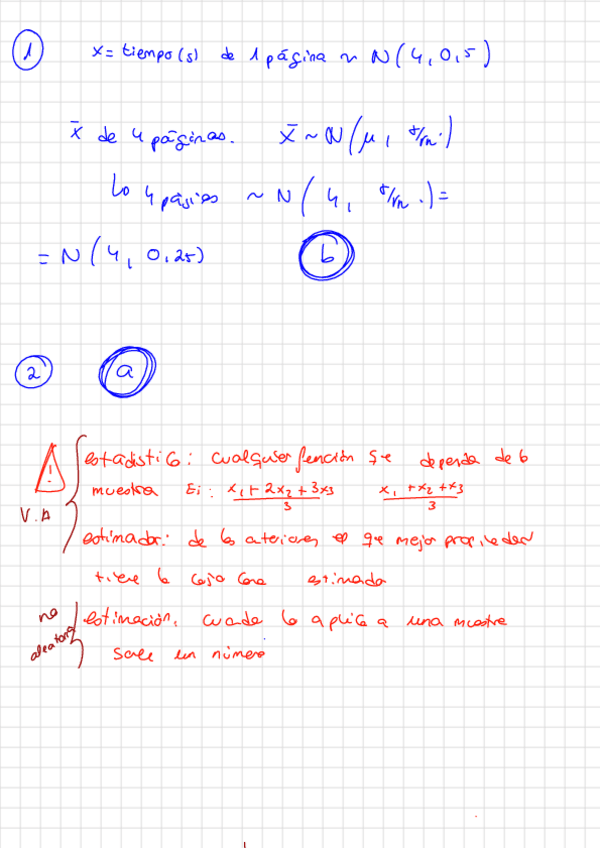 ① x = tiempo(s) de 1 página ~ N(4, 0,5)
x̄ de 4 páginas. X̄ ~ N(μ, σ/√n.)
↳ 4 págias ~ N(4, σ/√n.) =
= N(4, 0,25) ⓑ
② ⓐ
⚠ estadístico: cualquier función que dependa de la
muestra Ej: (x₁ + 2x₂ + 3x₃)/3 (x₁ + x₂ + x₃)/3
V.A
estimador: de los anteriores el que mejor propiedades
tiene lo cojo como estimador
no aleatoria
estimación: cuando lo aplico a una muestra
sale un número